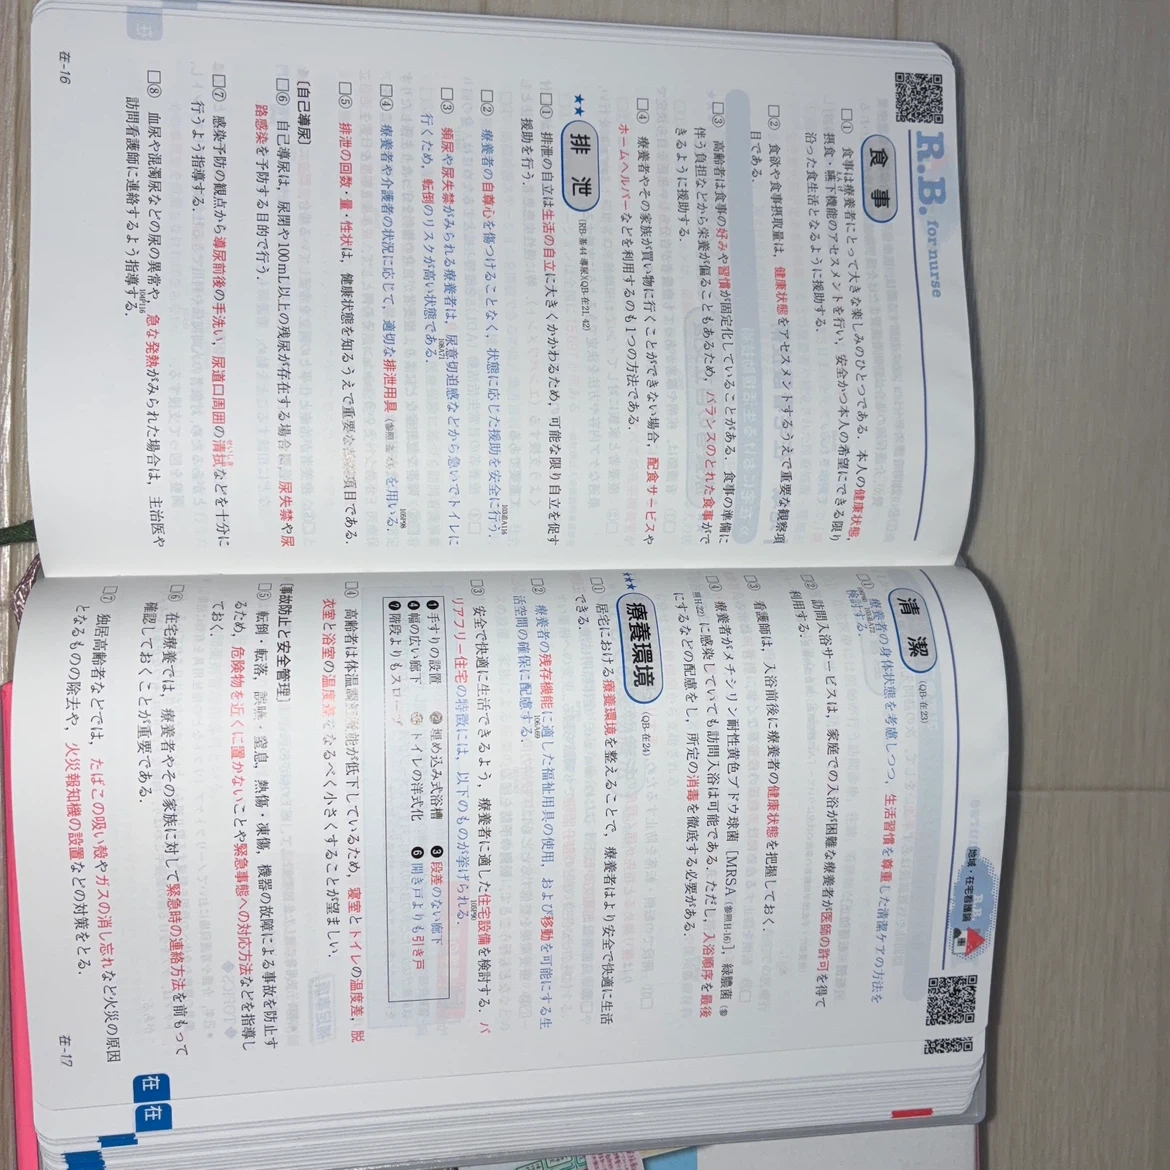 R.B. for nurse
食事
□① 食事は療養者にとって大きな楽しみのひとつである．本人の健康状態，
摂食・嚥下機能のアセスメントを行い，安全かつ本人の希望にできる限り
沿った食生活となるように援助する．
□② 食欲や食事摂取量は，健康状態をアセスメントするうえで重要な観察項
目である．
□③ 高齢者は食事の好みや習慣が固定化していることがある．食事の準備に
伴う負担などから栄養が偏ることもあるため，バランスのとれた食事がで
きるように援助する．
□④ 療養者やその家族が買い物に行くことができない場合，配食サービスや
ホームヘルパーなどを利用するのも1つの方法である．
★★
排泄 (RB-基44 導尿)(QB-在21, 42)
□① 排泄の自立は生活の自立に大きくかかわるため，可能な限り自立を促す
援助を行う．
□② 療養者の自尊心を傷つけることなく，状態に応じた援助を安全に行う．
□③ 頻尿や尿失禁がみられる療養者は，尿意切迫感などから急いでトイレに
行くため，転倒のリスクが高い状態である．
106A71
□④ 療養者や介護者の状況に応じて，適切な排泄用具を用いる．
105P98
□⑤ 排泄の回数・量・性状は，健康状態を知るうえで重要な項目である．
〔自己導尿〕
□⑥ 自己導尿は，尿閉や100mL以上の残尿が存在する場合に，尿失禁や尿
路感染を予防する目的で行う．
□⑦ 感染予防の観点から導尿前後の手洗い，尿道口周囲の清拭などを十分に
せいしき
行うよう指導する．
□⑧ 血尿や混濁尿などの尿の異常や，急な発熱がみられた場合は，主治医や
訪問看護師に連絡するよう指導する．
在-16
地域・在宅看護論
清潔 (QB-在23)
□① 療養者の身体状態を考慮しつつ，生活習慣を尊重した清潔ケアの方法を
検討する．
□② 訪問入浴サービスは，家庭での入浴が困難な療養者が医師の許可を得て
利用する．
□③ 看護師は，入浴前後に療養者の健康状態を把握しておく．
□④ 療養者がメチシリン耐性黄色ブドウ球菌［MRSA (参照H-16)］，緑膿菌 (参
照H-22) に感染していても訪問入浴は可能である．ただし，入浴順序を最後
にするなどの配慮をし，所定の消毒を徹底する必要がある．
★★★
療養環境 (QB-在24)
□① 居宅における療養環境を整えることで，療養者はより安全で快適に生活
できる．
□② 療養者の残存機能に適した福祉用具の使用，および移動を可能にする生
活空間の確保に配慮する．
106A69
□③ 安全で快適に生活できるよう，療養者に適した住宅設備を検討する．バ
リアフリー住宅の特徴には，以下のものが挙げられる．
105P90
❶ 手すりの設置 ❷ 埋め込み式浴槽 ❸ 段差のない廊下
❹ 幅の広い廊下 ❺ トイレの洋式化 ❻ 開き戸よりも引き戸
❼ 階段よりもスロープ
□④ 高齢者は体温調節機能が低下しているため，寝室とトイレの温度差，脱
衣室と浴室の温度差をなるべく小さくすることが望ましい．
〔事故防止と安全管理〕
□⑤ 転倒・転落，誤嚥・窒息，熱傷・凍傷，機器の故障による事故を防止す
るため，危険物を近くに置かないことや緊急事態への対応方法などを指導し
ておく．
□⑥ 在宅療養では，療養者やその家族に対して緊急時の連絡方法を前もって
確認しておくことが重要である．
□⑦ 独居高齢者などでは，たばこの吸い殻やガスの消し忘れなど火災の原因
となるものの除去や，火災報知機の設置などの対策をとる．
在-17
在
在